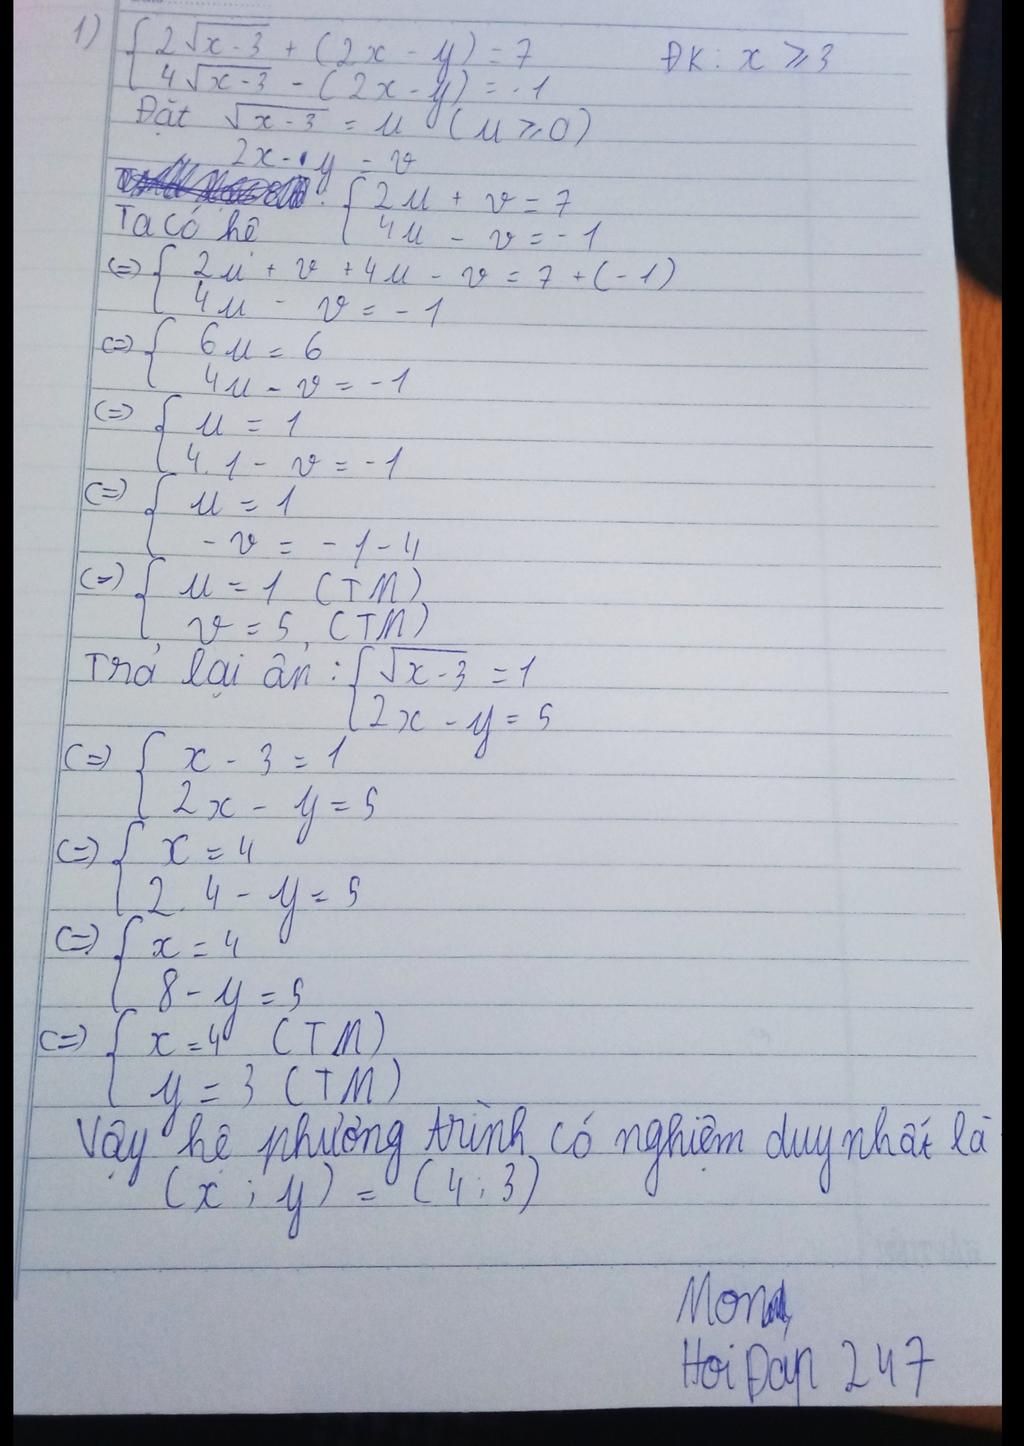 1) { 2√x-3 + (2x - y) = 7 ĐK: x ≥ 3
4√x-3 - (2x - y) = -1
Đặt √x-3 = u (u ≥ 0)
2x - y = v
{ 2u + v = 7
Ta có hệ 4u - v = -1
(=) { 2u + v + 4u - v = 7 + (-1)
4u - v = -1
(=) { 6u = 6
4u - v = -1
(=) { u = 1
4.1 - v = -1
(=) { u = 1
-v = -1-4
(=) { u = 1 (TM)
v = 5 (TM)
Trả lại ẩn : { √x-3 = 1
2x - y = 5
(=) { x - 3 = 1
2x - y = 5
(=) { x = 4
2.4 - y = 5
(=) { x = 4
8 - y = 5
(=) { x = 4 (TM)
y = 3 (TM)
Vậy hệ phương trình có nghiệm duy nhất là
(x ; y) = (4 ; 3)
Hoi Đáp 247